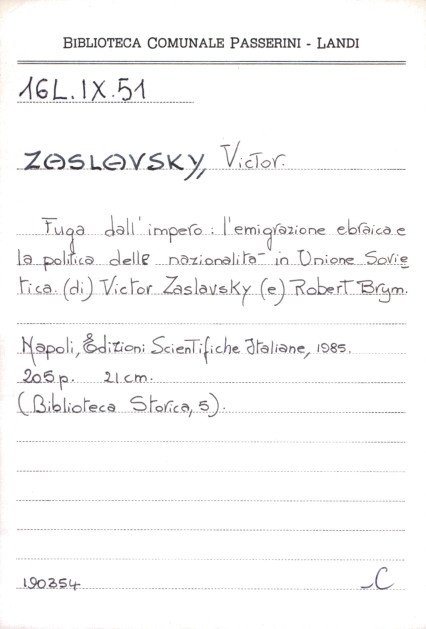 BIBLIOTECA COMUNALE PASSERINI - LANDI
16L.IX.51
ZASLAVSKY, Victor.
Fuga dall'impero : l'emigrazione ebraica e
la politica delle nazionalità in Unione Sovie
tica. (di) Victor Zaslavsky (e) Robert Brym.
Napoli, Edizioni Scientifiche Italiane, 1985.
205 p. 21 cm.
(Biblioteca Storica, 5).
190354 C